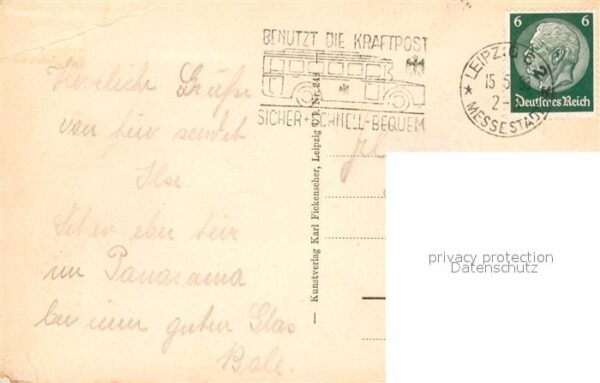 BENUTZT DIE KRAFTPOST
SICHER-SCHNELL-BEQUEM
LEIPZIG C 2
15.5.
MESSESTADT
6 6
Deutsches Reich
Herzliche Grüße
von hier sendet
Ilse
hier
im Panorama
bei einem guten Glas
Kunstverlag Karl Fickenscher, Leipzig
privacy protection
Datenschutz